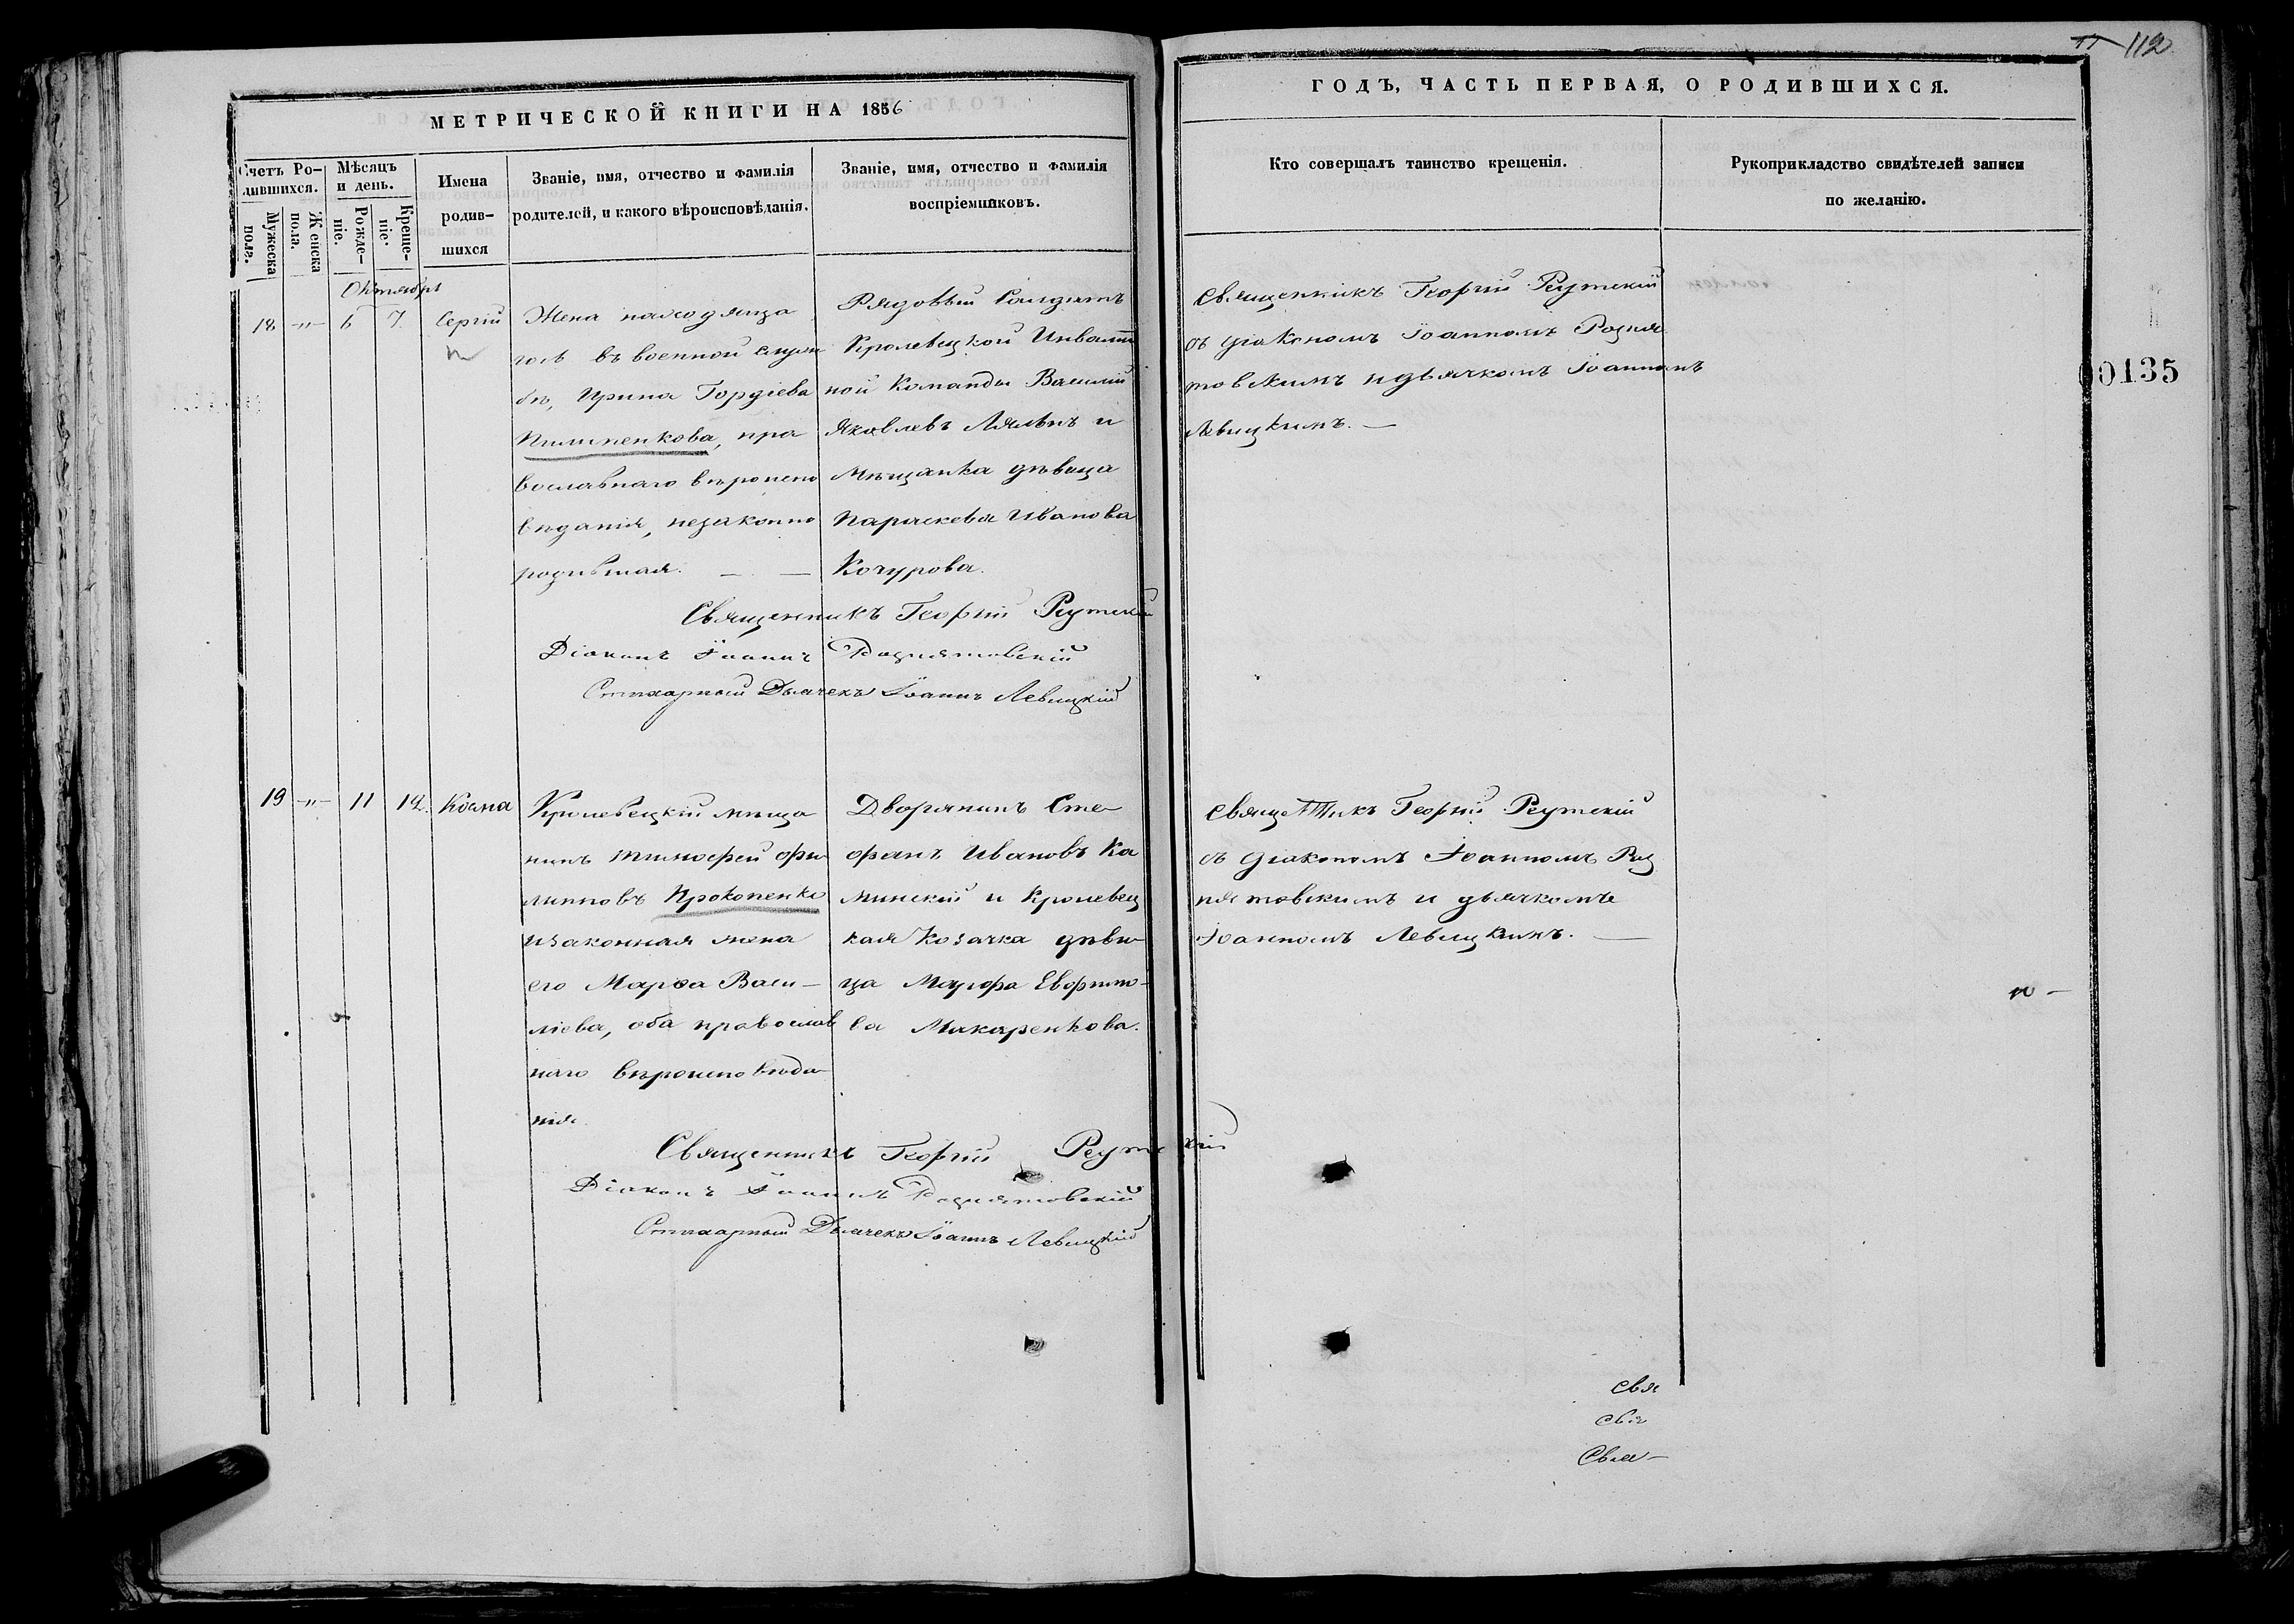 112
МЕТРИЧЕСКОЙ КНИГИ НА 1856
ГОДЪ, ЧАСТЬ ПЕРВАЯ, О РОДИВШИХСЯ.
Счетъ Ро-
дившихся.
Мужеска
пола.
Женска
пола.
Мѣсяцъ
и день.
Рожде-
ніе.
Креще-
ніе.
Имена
родив-
шихся
Званіе, имя, отчество и фамилія
родителей, и какого вѣроисповѣданія.
Званіе, имя, отчество и фамилія
воспріемниковъ.
Кто совершалъ таинство крещенія.
Рукоприкладство свидѣтелей записи
по желанію.
Октябрь
18 -"- 6 7 Сергій
Жена находяща
гося въ военной служ
бѣ, Ирина Гордіева
Пилипенкова, пра
вославнаго вѣроиспо
вѣданія, незаконно
родившая. — —
Рядовый Солдатъ
Кролевецкой Инвалид
ной Команды Василій
Яковлевъ и
Мѣщанка дѣвица
Параскева Иванова
Кочурова.
Священникъ Георгій Реутскій
съ діакономъ Іоанномъ Рознея
товскимъ и дьячкомъ Іоанномъ
Левицкимъ. —
00135
Священникъ Георгій Реутскій
Діаконъ Іоаннъ Рознятовскій
Стихарный Дьячекъ Іоаннъ Левицкій
19 -"- 11 12. Косма
Кролевецкій мѣща
нинъ Тимофей Фи
липповъ Прокопенко
и законная жена
его Марѳа Васи-
ліева, оба православ
наго вѣроисповѣда
нія.
Дворянинъ Сте
фанъ Ивановъ Ка
минскій и Кролевец
кая Козачка дѣви-
ца Марфа Евфимо-
ва Макаренкова.
Священникъ Георгій Реутскій
съ діакономъ Іоанномъ Роз
нятовскимъ и дьячкомъ
Іоанномъ Левицкимъ. —
Священникъ Георгій Реутскій
Діаконъ Іоаннъ Рознятовскій
Стихарный Дьячекъ Іоаннъ Левицкій
свя
свя
Свя-